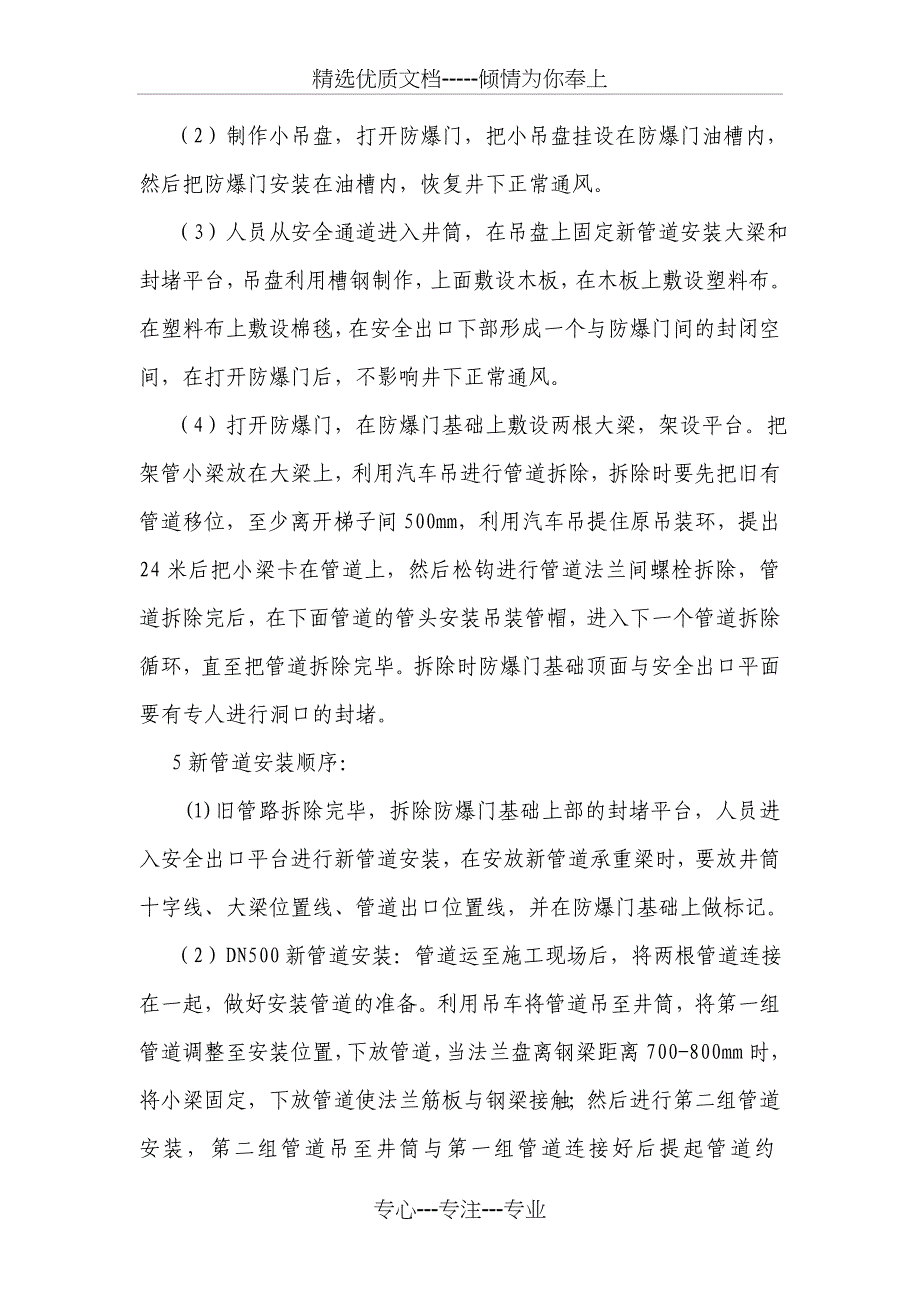 精选优质文档-----倾情为你奉上
（2）制作小吊盘，打开防爆门，把小吊盘挂设在防爆门油槽内，
然后把防爆门安装在油槽内，恢复井下正常通风。
（3）人员从安全通道进入井筒，在吊盘上固定新管道安装大梁和
封堵平台，吊盘利用槽钢制作，上面敷设木板，在木板上敷设塑料布。
在塑料布上敷设棉毯，在安全出口下部形成一个与防爆门间的封闭空
间，在打开防爆门后，不影响井下正常通风。
（4）打开防爆门，在防爆门基础上敷设两根大梁，架设平台。把
架管小梁放在大梁上，利用汽车吊进行管道拆除，拆除时要先把旧有
管道移位，至少离开梯子间 500mm，利用汽车吊提住原吊装环，提出
24 米后把小梁卡在管道上，然后松钩进行管道法兰间螺栓拆除，管
道拆除完后，在下面管道的管头安装吊装管帽，进入下一个管道拆除
循环，直至把管道拆除完毕。拆除时防爆门基础顶面与安全出口平面
要有专人进行洞口的封堵。
5 新管道安装顺序：
(1)旧管路拆除完毕，拆除防爆门基础上部的封堵平台，人员进
入安全出口平台进行新管道安装，在安放新管道承重梁时，要放井筒
十字线、大梁位置线、管道出口位置线，并在防爆门基础上做标记。
（2）DN500 新管道安装：管道运至施工现场后，将两根管道连接
在一起，做好安装管道的准备。利用吊车将管道吊至井筒，将第一组
管道调整至安装位置，下放管道，当法兰盘离钢梁距离 700-800mm 时，
将小梁固定，下放管道使法兰筋板与钢梁接触；然后进行第二组管道
安装，第二组管道吊至井筒与第一组管道连接好后提起管道约
专心---专注---专业